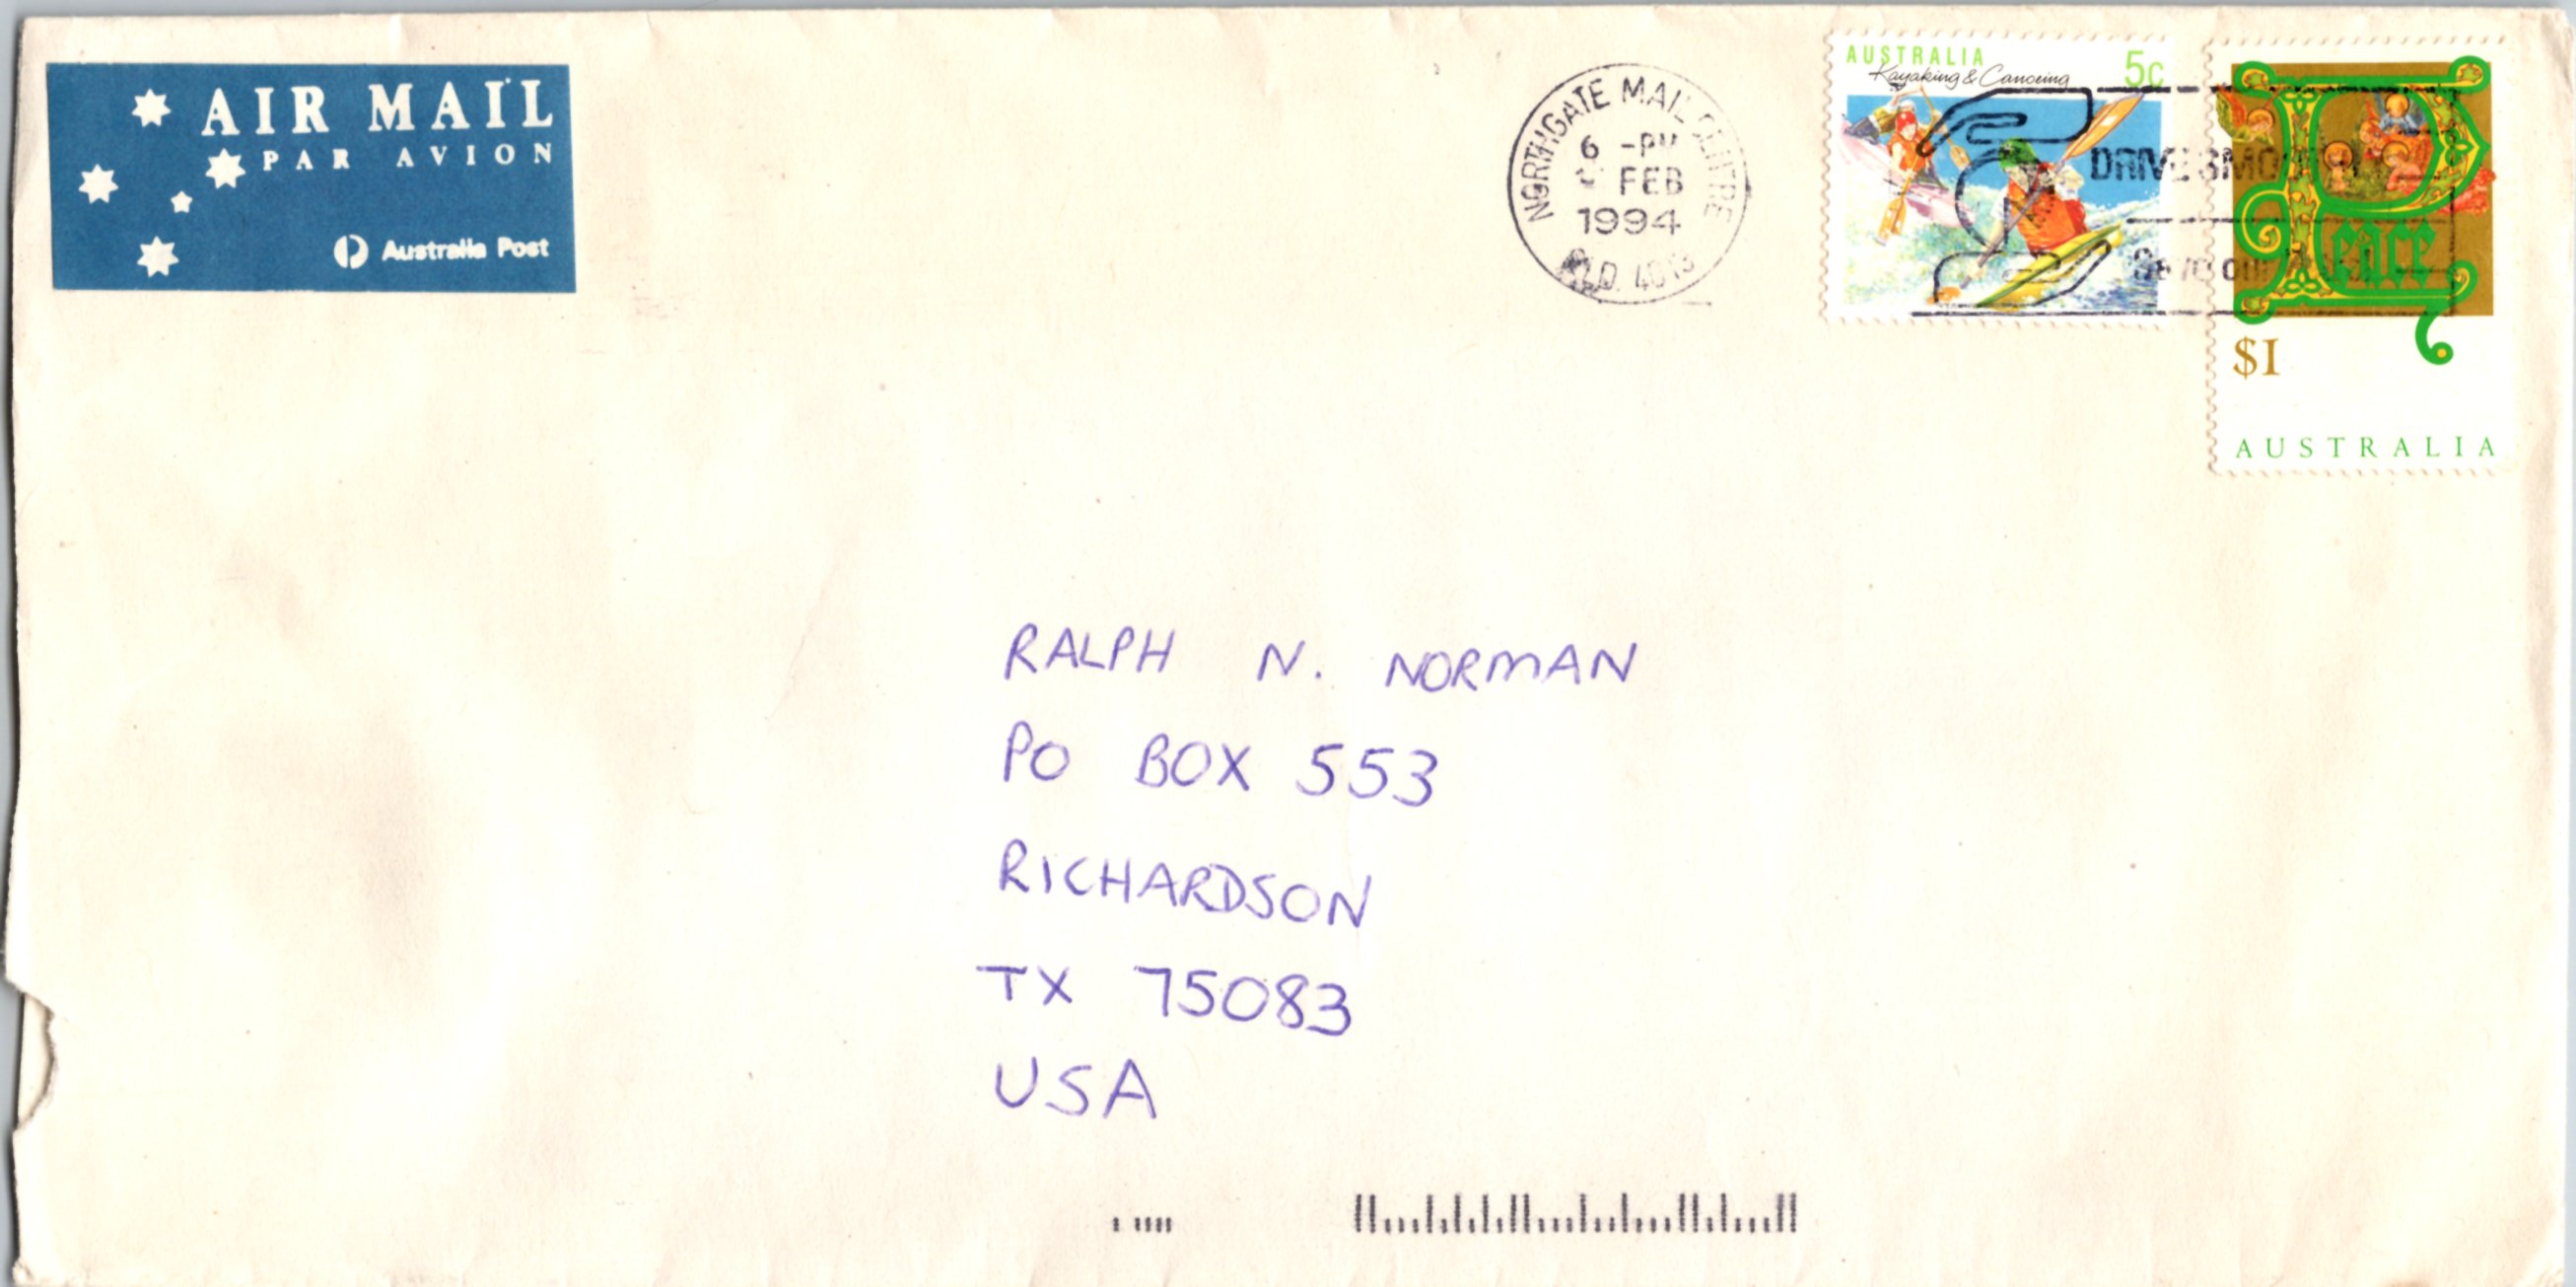 AIR MAIL
PAR AVION
Australia Post
NORTHGATE MAIL CENTRE
6 -PM
FEB
1994
QLD. 4013
AUSTRALIA
Kayaking & Canoeing
5c
DRIVE
Peace
$1
AUSTRALIA
RALPH N. NORMAN
PO BOX 553
RICHARDSON
TX 75083
USA